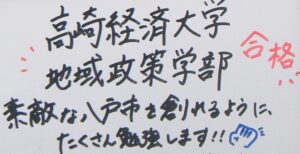 高崎経済大学
合格
地域政策学部
素敵な八戸市を創れるように、
たくさん勉強します!!